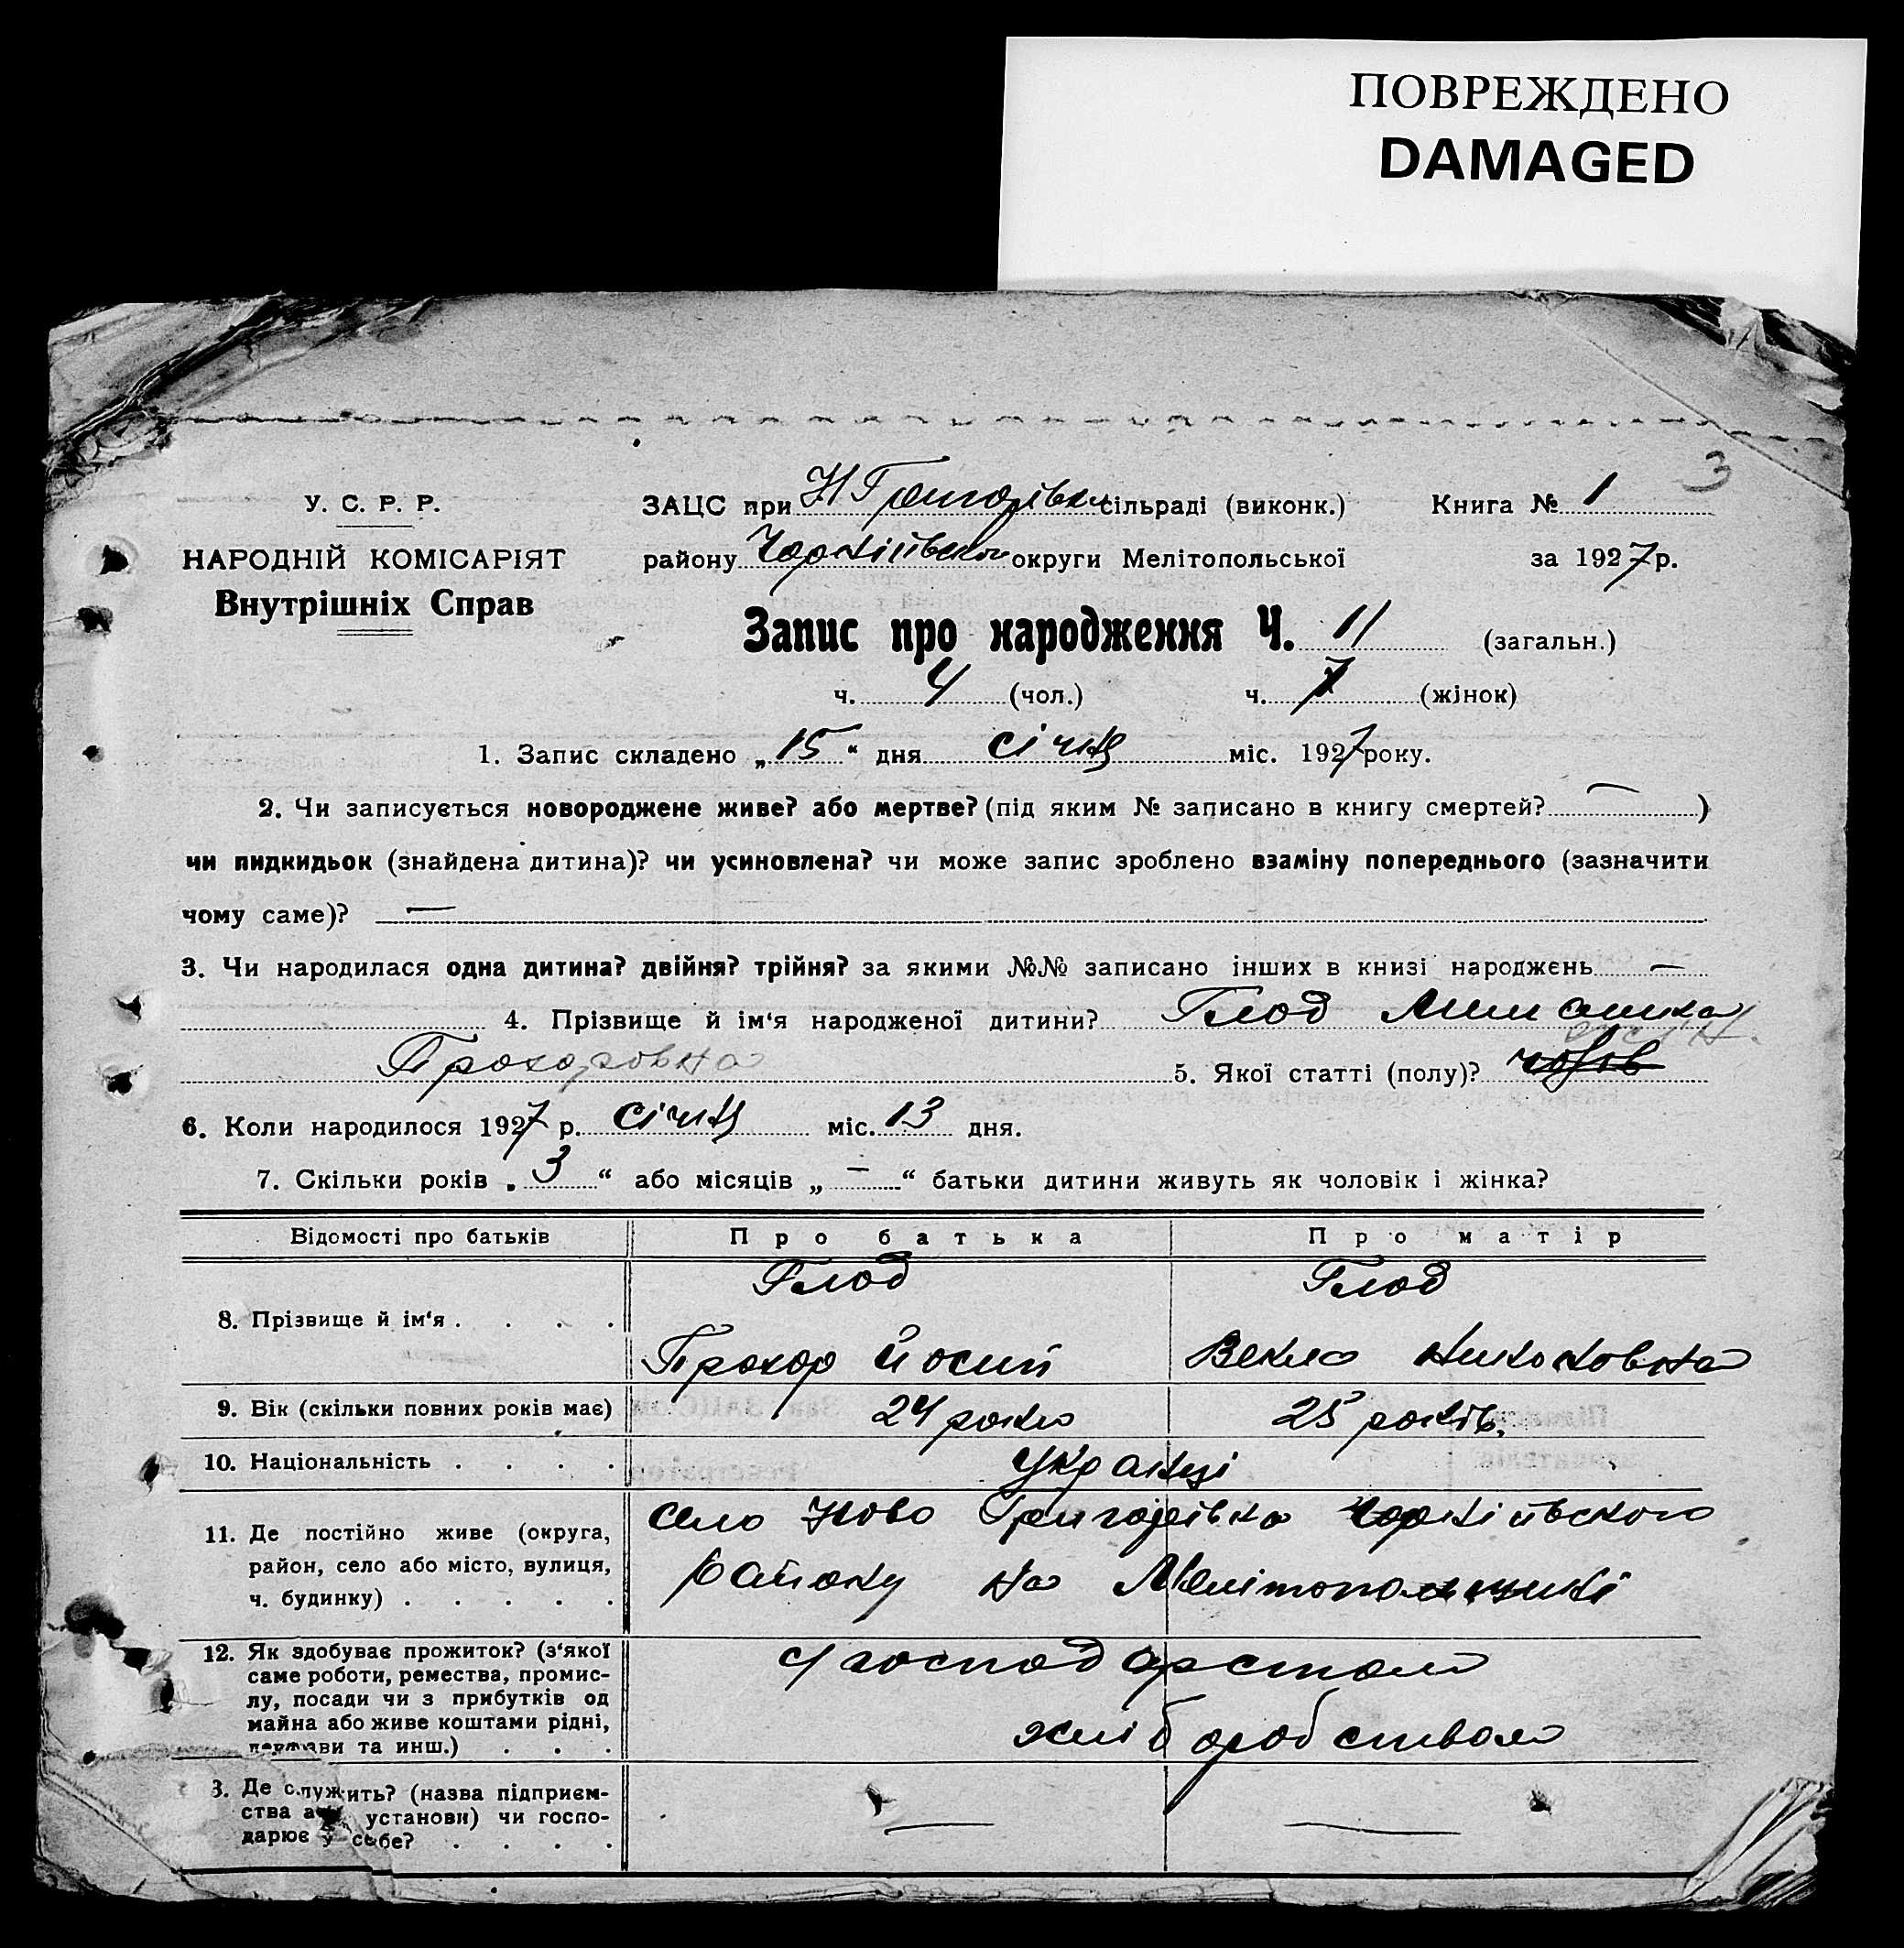 ПОВРЕЖДЕНО
DAMAGED
3
У. С. Р. Р.
НАРОДНІЙ КОМІСАРІЯТ
Внутрішніх Справ
ЗАЦС при Н Григорівк сільраді (виконк.) Книга № 1
району округи Мелітопольської за 1927 р.
Запис про народження Ч. 11 (загальн.)
ч. 4 (чол.) ч. 7 (жінок)
1. Запис складено „15“ дня січня міс. 1927 року.
2. Чи записується новороджене живе? або мертве? (під яким № записано в книгу смертей? — )
чи пидкидьок (знайдена дитина)? чи усиновлена? чи може запис зроблено взаміну попереднього (зазначити
чому саме)? —
3. Чи народилася одна дитина? двійня? трійня? за якими №№ записано інших в книзі народжень —
4. Прізвище й ім‘я народженої дитини? Глод
Прохоровна 5. Якої статті (полу)? жін.
6. Коли народилося 1927 р. січня міс. 13 дня.
7. Скільки років „3“ або місяців „—“ батьки дитини живуть як чоловік і жінка?
Відомості про батьків Про батька Про матір
8. Прізвище й ім‘я . . . . Глод Глод
Прохор Йосип Векла
9. Вік (скільки повних років має) 24 роки 25 років.
10. Національність . . . . Українці
11. Де постійно живе (округа,
район, село або місто, вулиця,
ч. будинку) . . . . .
село Ново Григорівка
району на Мелітопольщині
12. Як здобуває прожиток? (з‘якої
саме роботи, ремества, промис-
лу, посади чи з прибутків од
майна або живе коштами рідні,
держави та инш.) . . .
хліборобством
3. Де служить? (назва підприєм-
ства або установи) чи госпо-
дарює у себе? . . . .
— —